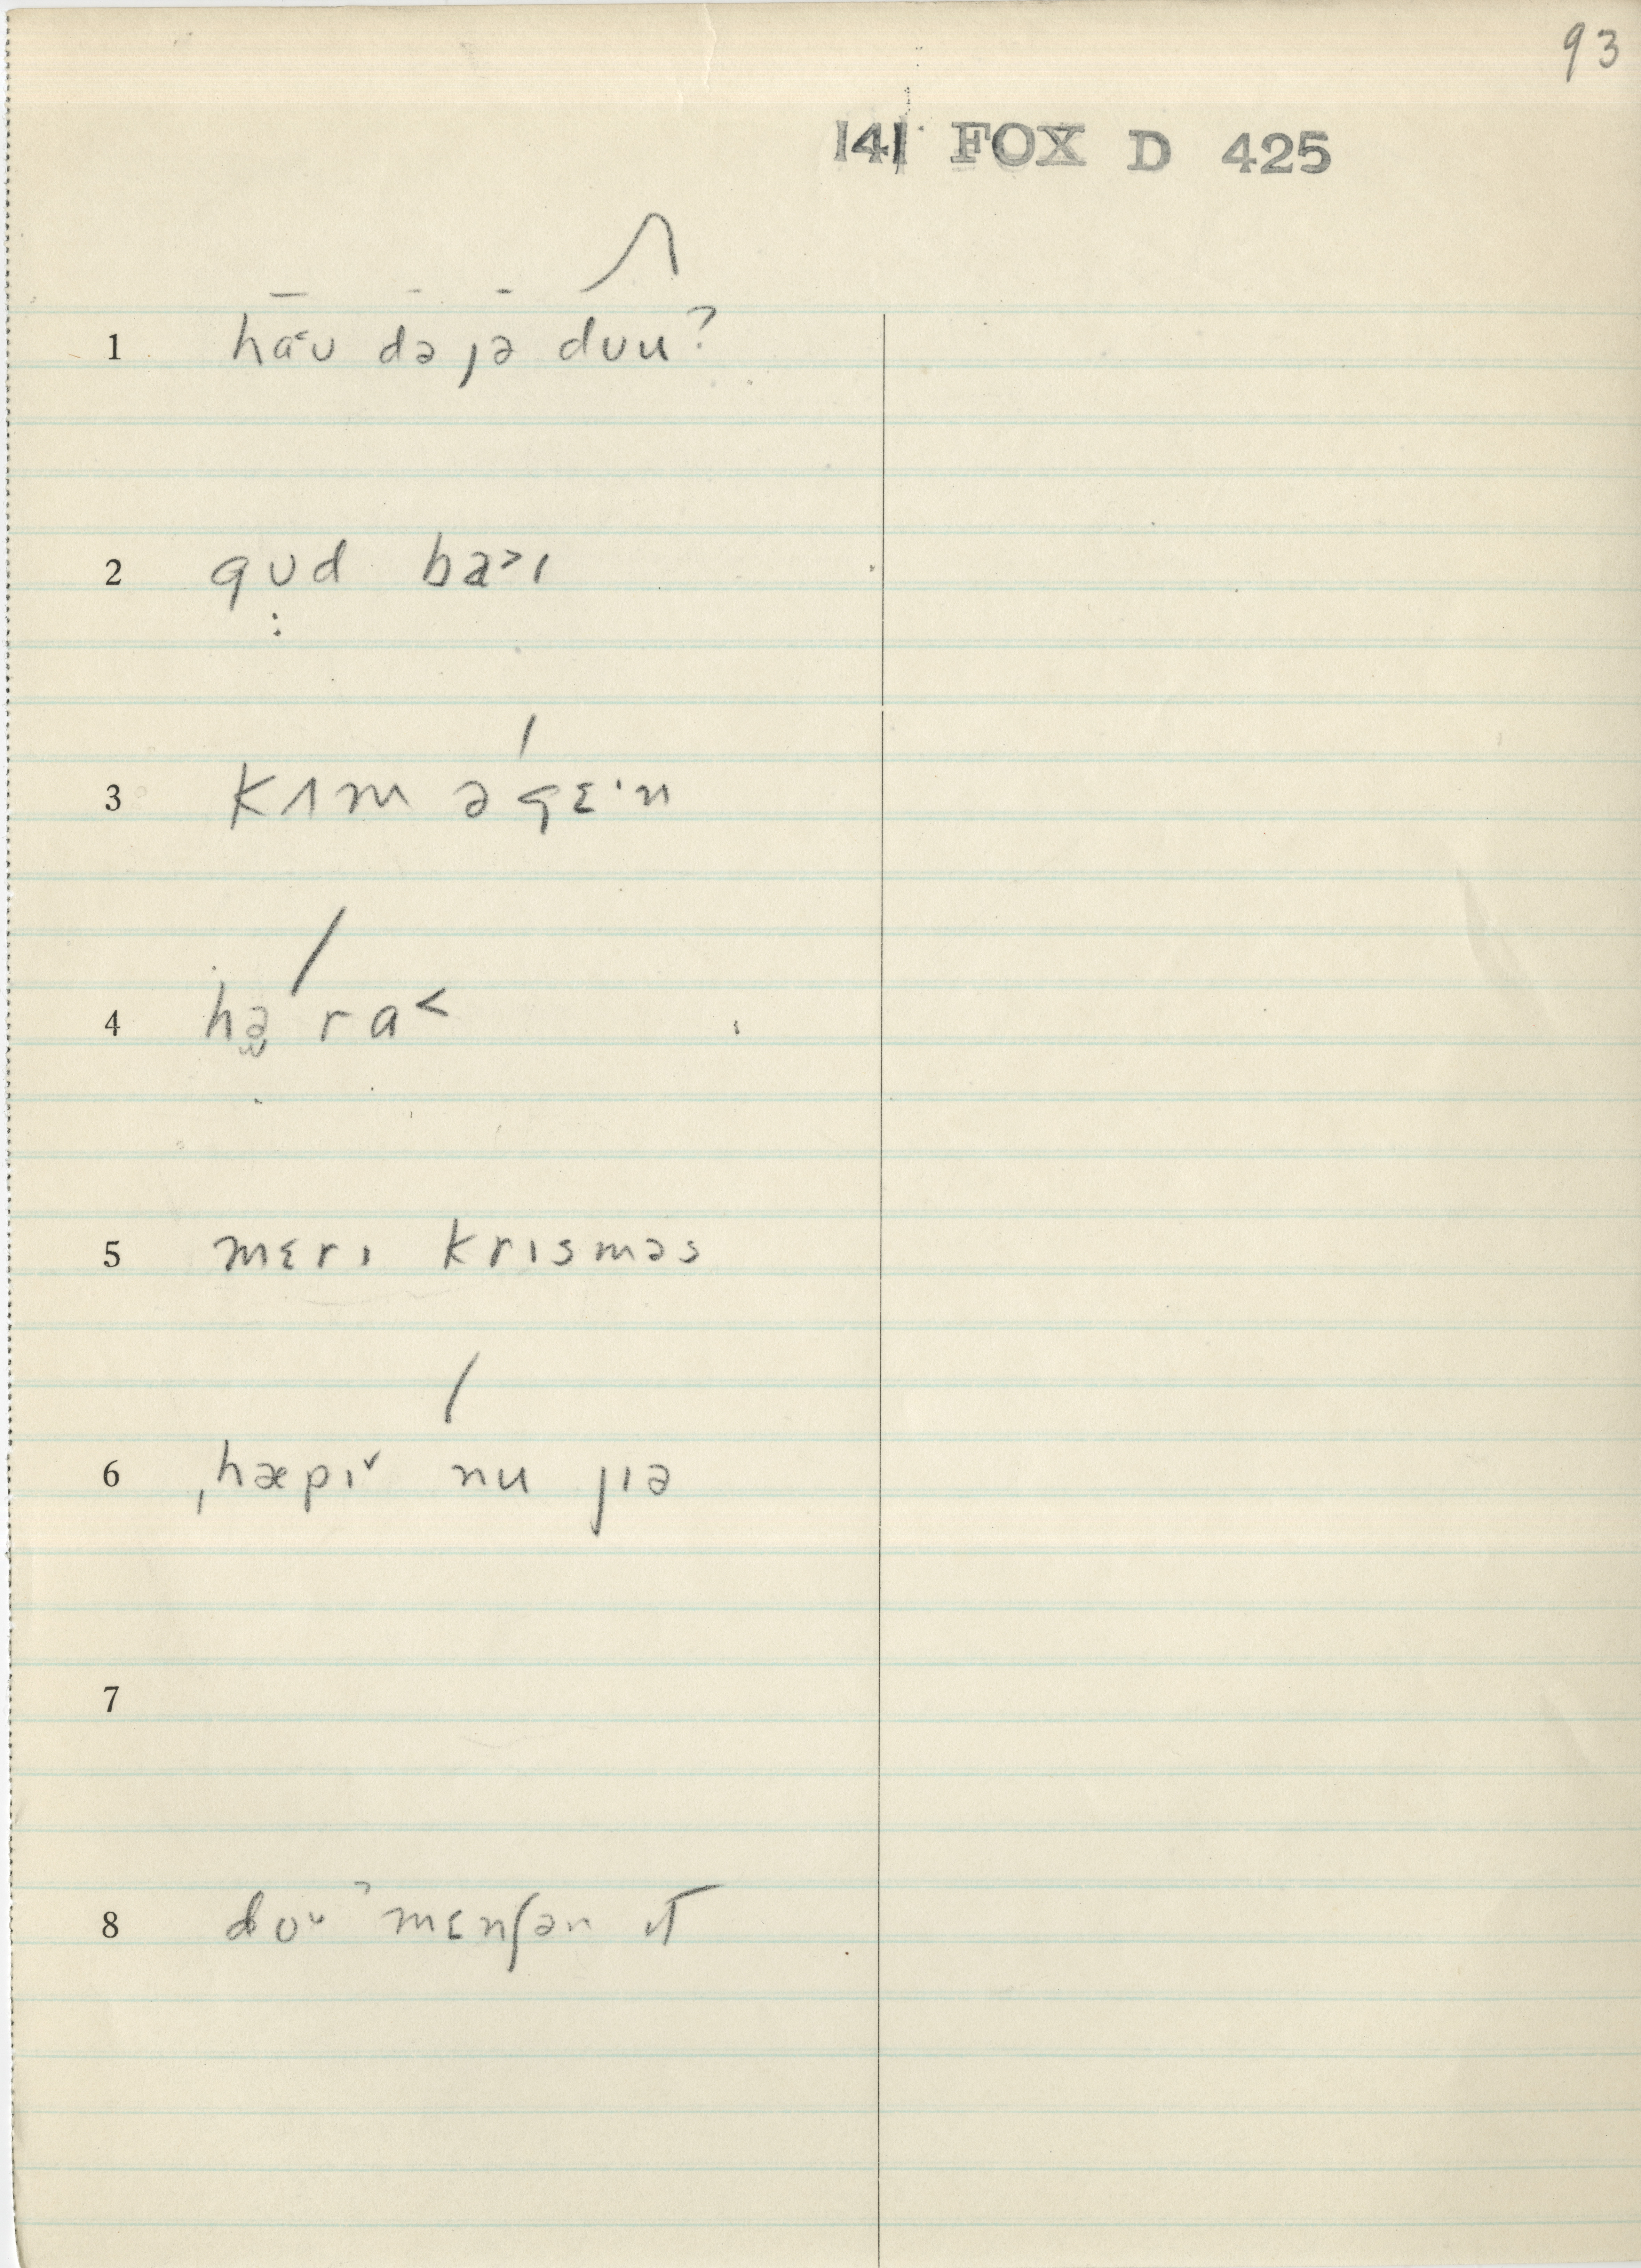 93
141 FOX D 425
1 ha˂ʊ də jə dʊu?
2 gʊd ba˃ɪ
3 kʌm əgɛ·n
4 hə ra˂
5 mɛrɪ krɪsməs
6 ˌhæpɪˇ nu jɪə
7
8 doᶷˀ mɛnʃən ɪt